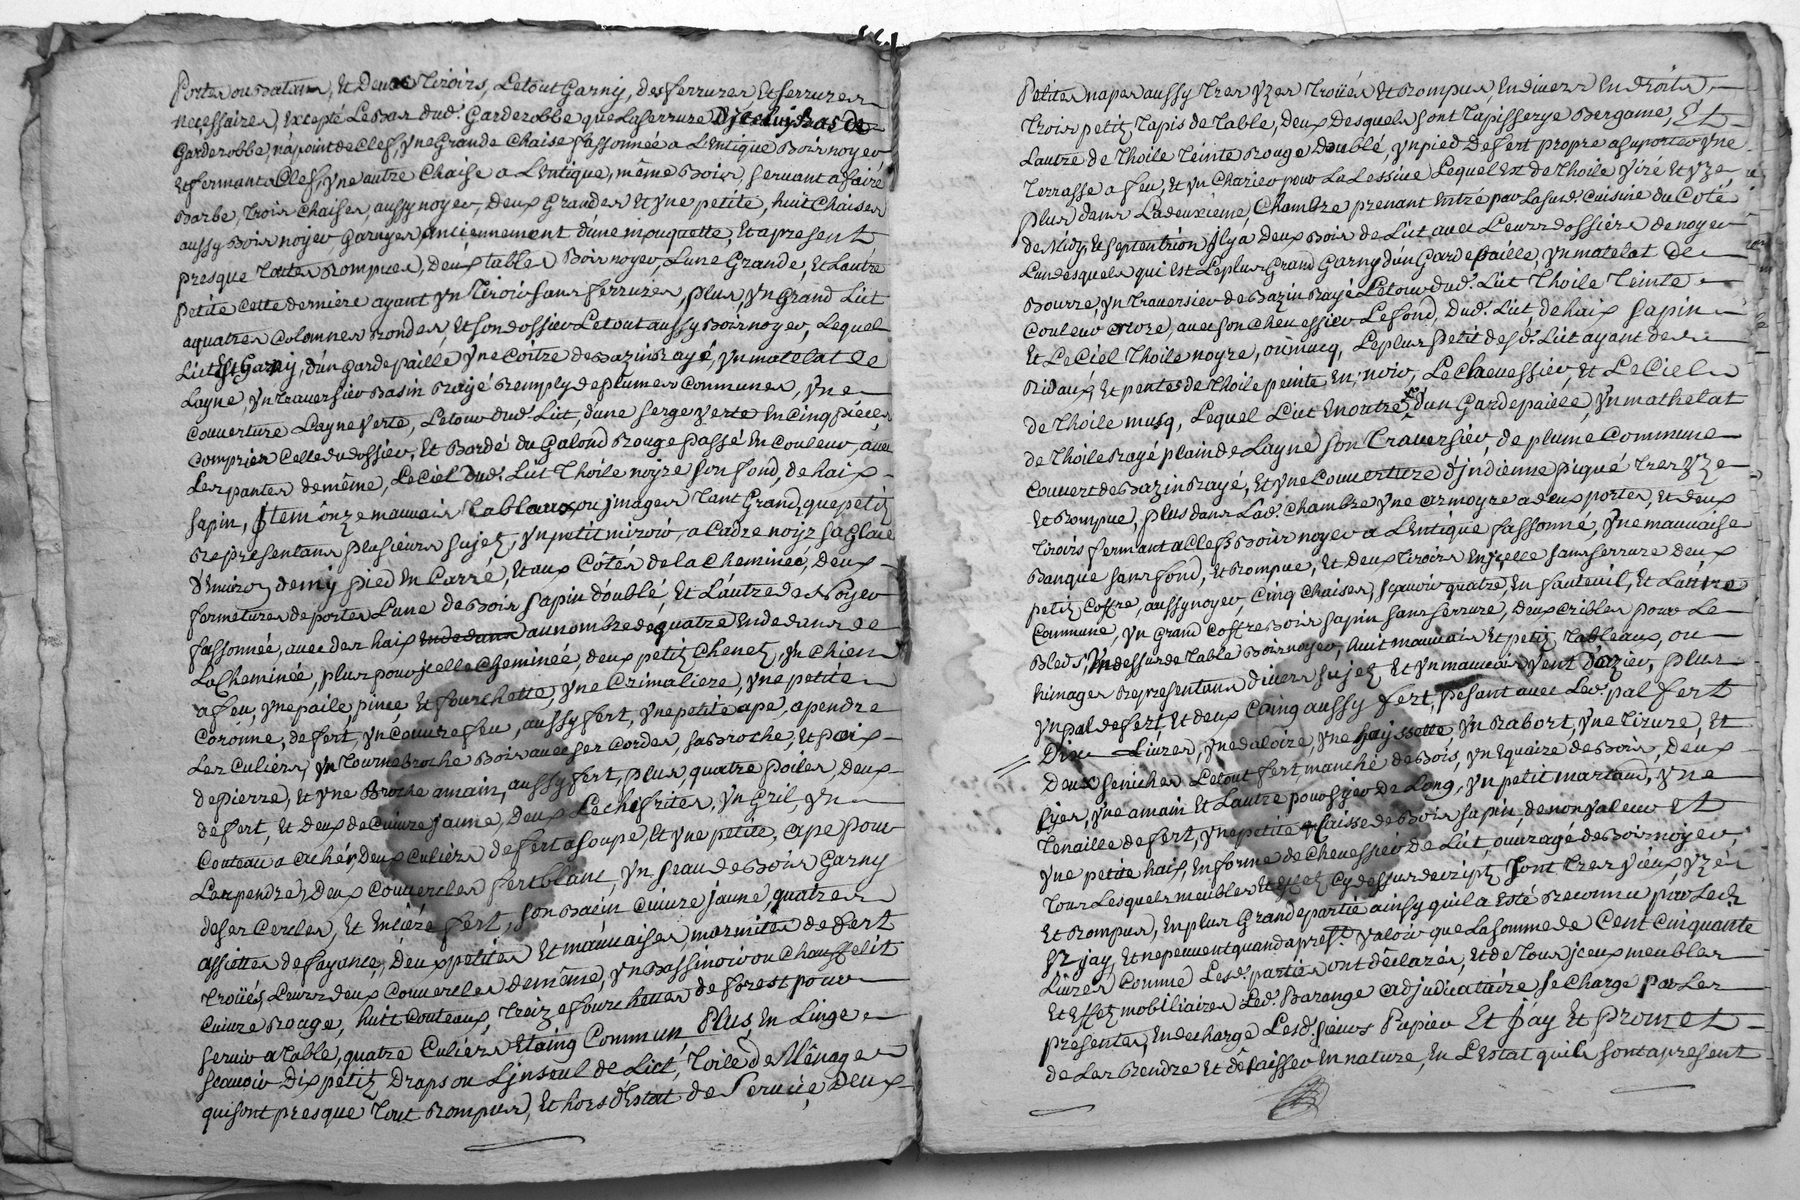 Portes ou Batans, Et Deux Tiroirs, Letout Garny, des ferrures, Et serrures
necessaires, Excepté Le Bas dud. Garderobbe que La serrure D'jceluy Bas de
Garderobbe, n'a point de Clef, Yne Grande Chaise fassonnée a L'entique Bois noyer
Et fermant a Clef, Yne autre Chaise a L'entique, même Bois, servant a faire
Barbe, Trois Chaises aussy noyer, Deux Grandes Et Yne petite, huit Chaises
aussy Bois noyer Garnyes anciennement d'une mouquette, Et apresent
presque Toutes Rompues, Deux tables Bois noyer, L'une Grande, Et L'autre
Petite cette derniere ayant Yn Tiroir sans ferrures, Plus, Yn Grand Lict
a quatres Colonnes Rondes, Et son dossier Letout aussy Bois noyer, Lequel
Lict Est Garny, d'un gardepaille Yne Coitre de Bazin Rayé, Yn matelat de
Layne, Yn Traversier Basin Rayé Remply de plumes Communes, Yne
Couverture Layne Verte, Letour dud. Lict, d'une serge verte En Cinq pieces
Compries Celle du dossier, Et Bordé du Galond Rouge Passé En Couleur, avec
Les pantes de même, Le Ciel dud. Lict Thoile noyre son fond, de haix
sapin, Jtem ônze mauvais Tableaux ou jmages Tant Grand que petitz
Representans Plusieurs sujetz, Yn petit miroir, a Cadre noir sa Glace
D'Environ demy pied En Carré, Et aux Côtés de la Cheminée, deux
fermetures de portes L'une de Bois Sapin doublé, Et L'autre de Noyer
fassonnée, avec des haix Endedans au nombre de quatre Endedans de
La Cheminée, plus pour jcelle Cheminée, deux petitz Chenetz, Yn Chien
a feu, Yne paile, pince, Et fourchette, Yne Crimaliere, Yne petite
Coronne, de fert, Yn Couvrefeu, aussy fert, Yne petite ape, a pendre
Les Culiers, Yn Tournebroche Bois avec ses Cordes, sa Broche, Et Poix
de pierre, Et Yne Broche a main, aussy fert, plus quatre Poiles, deux
de fert, Et Deux de Cuivre jaune, Deux Lechifrites, Yn Gril, Yn
Couteau a achér, Deux Culiers de fert a soupe, Et Yne petite, ape pour
Les pendre, Deux Couvercles fert blanc, Yn Seau de Bois Garny
de ses Cercles, Et Enciéré fert, son Bacin Cuivre jaune, quatres
assiettes de fayance, Deux petites Et mauvaises, marmites de fert
Troüés, Leurs deux Couvercles de même, Yn Bassinoir ou Chauffelit
Cuivre Rouge, huit Couteaux, Treize fourchettes de forest pour
servir a Table, quatre Culiers Etaing Commun, Plus, En Linge
scavoir Dix petitz Draps ou Linseul de Lict, Toile de Mênage
qui sont presque Tout Rompus, Et hors d'Estat de Service Deux
Petites napes aussy Tres Yzes Troüés Et Rompus, En divers Endroits
Trois petitz Tapis de Table, deux Desquels sont Tapisserye Bergame, Et
L'autre de Thoile Teinte Rouge Doublé, Yn pied de fert propre a suporter Yne
Terrasse a feu, Et Yn Charier pour La Lessive Lequel Est de Thoile Viré Et Yzé
Plus dans La deuxieme Chambre prenant Entré par La sud. Cuisine du Coté
de Midy, Et Septentrion Jl y a Deux Bois de Lict avec Leurs dossiers de noyer
L'un desquels qui Est Le plus Grand Garny d'un Gardepaille, Yn matelat de
Bourre, Yn Traversier de Bazin Rayé Letour dud. Lict Thoile Teinte
Couleur orore, avec son Chevessier Le fond, dud. Lict, de haix Sapin
Et Le Ciel Thoile noyre, ou musq, Le plus Petit desd. Lict ayant des
Ridaux, Et pentes de Thoile peinte En, noir, Le Chevessier, Et Le Ciel
de Thoile musq, Lequel Lict En outre d'un Gardepaille, Yn mathelat
de Thoile Rayé plain de Layne son Traversier, de plume Commune
Couvert de Bazin Rayé, Et Yne Couverture d'jndienne piqué Tres Yze
Et Rompue, Plus dans Lad. Chambre Yne armoyre a deux portes, Et deux
Tiroirs fermant a Clefs Bois noyer a L'entique fassonné, Yne mauvaise
Banque sans fond, Et Rompue, Et Deux Tiroirs En jcelle sans serrure deux
petitz Coffre, aussy noyer, Cinq Chaises, scavoir quatre, En fauteuil, Et L'autre
Commune, Yn Grand Coffre Bois Sapin sans serrure, Deux Cribles pour Le
Bleds, Yn dessur de Table Bois noyer, huit mauvais Et petitz Tableaux, ou
himages Representans divers sujetz Et Yn mauvais Vent d'ozier, Plus
Yn Pal de fert, Et deux Coing aussy fert, Pesant avec Led. pal fert
Dix Livres, Yne daloire, Yne hayssotte, Yn Rabort, Yne Tirure, Et
Deux Seriches Letout fert, manché de Bois, Yn Equaire de Bois, Deux
Cyes, Yne a main Et L'autre pour syer de Long, Yn petit martaud, Yne
Tenaille de fert, Yne petite Caisse de Bois sapin, de non valeur Et
Yne petite haix, En forme de Chevessier de Lict, ouvrage de Bois noyer,
Tous Lesquels meubles Et effetz Cydessus decriptz Sont Tres Vieux, Yzés
Et Rompus, En plus Grande partie ainsy qu'il a Esté Reconnu par Lesd.
Et jay, Et ne peuvent quand apresent Valoir que La somme de Cent Cinquante
Livres Comme Lesd. parties ont declarés, Et de Tous jceux meubles
Et Effetz mobiliaires Led. Barange adjudicataire se Charge par Les
présentes, En decharge Lesd. sœurs Papier Et Jay Et Promet
de Les Rendre Et délaisser En nature, En L'estat qu'ils sont apresent